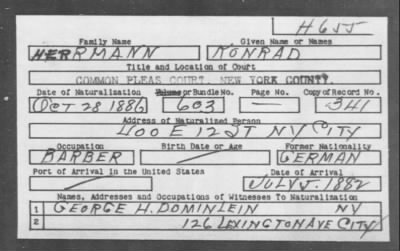 H655
Family Name Given Name or Names
HERRMANN KONRAD
Title and Location of Court
COMMON PLEAS COURT, NEW YORK COUNTY.
Date of Naturalization Volume or Bundle No. Page No. Copy of Record No.
OCT 28 1886 603 — 341
Address of Naturalized Person
400 E 12 ST NY CITY
Occupation Birth Date or Age Former Nationality
BARBER GERMAN
Port of Arrival in the United States Date of Arrival
JULY 5. 1882
Names, Addresses and Occupations of Witnesses To Naturalization
1 GEORGE H. DOMINLEIN NY
2 126 LEXINGTON AVE CITY